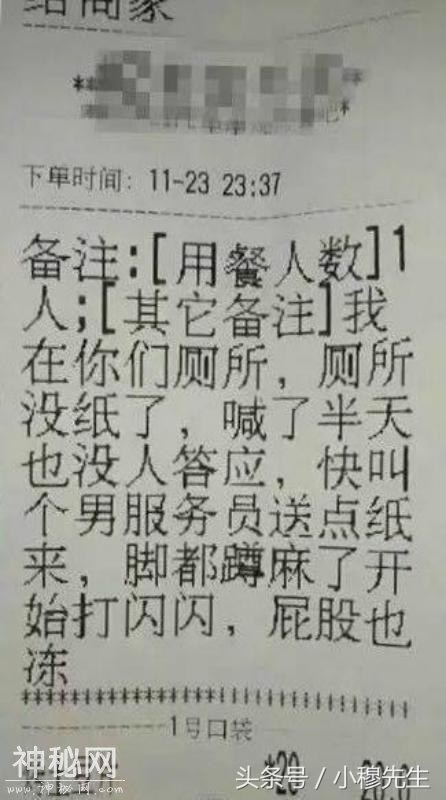 给商家
下单时间: 11-23 23:37
备注:[用餐人数]1
人;[其它备注]我
在你们厕所，厕所
没纸了，喊了半天
也没人答应，快叫
个男服务员送点纸
来，脚都蹲麻了开
始打闪闪，屁股也
冻
1号口袋
神秘网
www.shenmi.com.cn
头条号／小穆先生